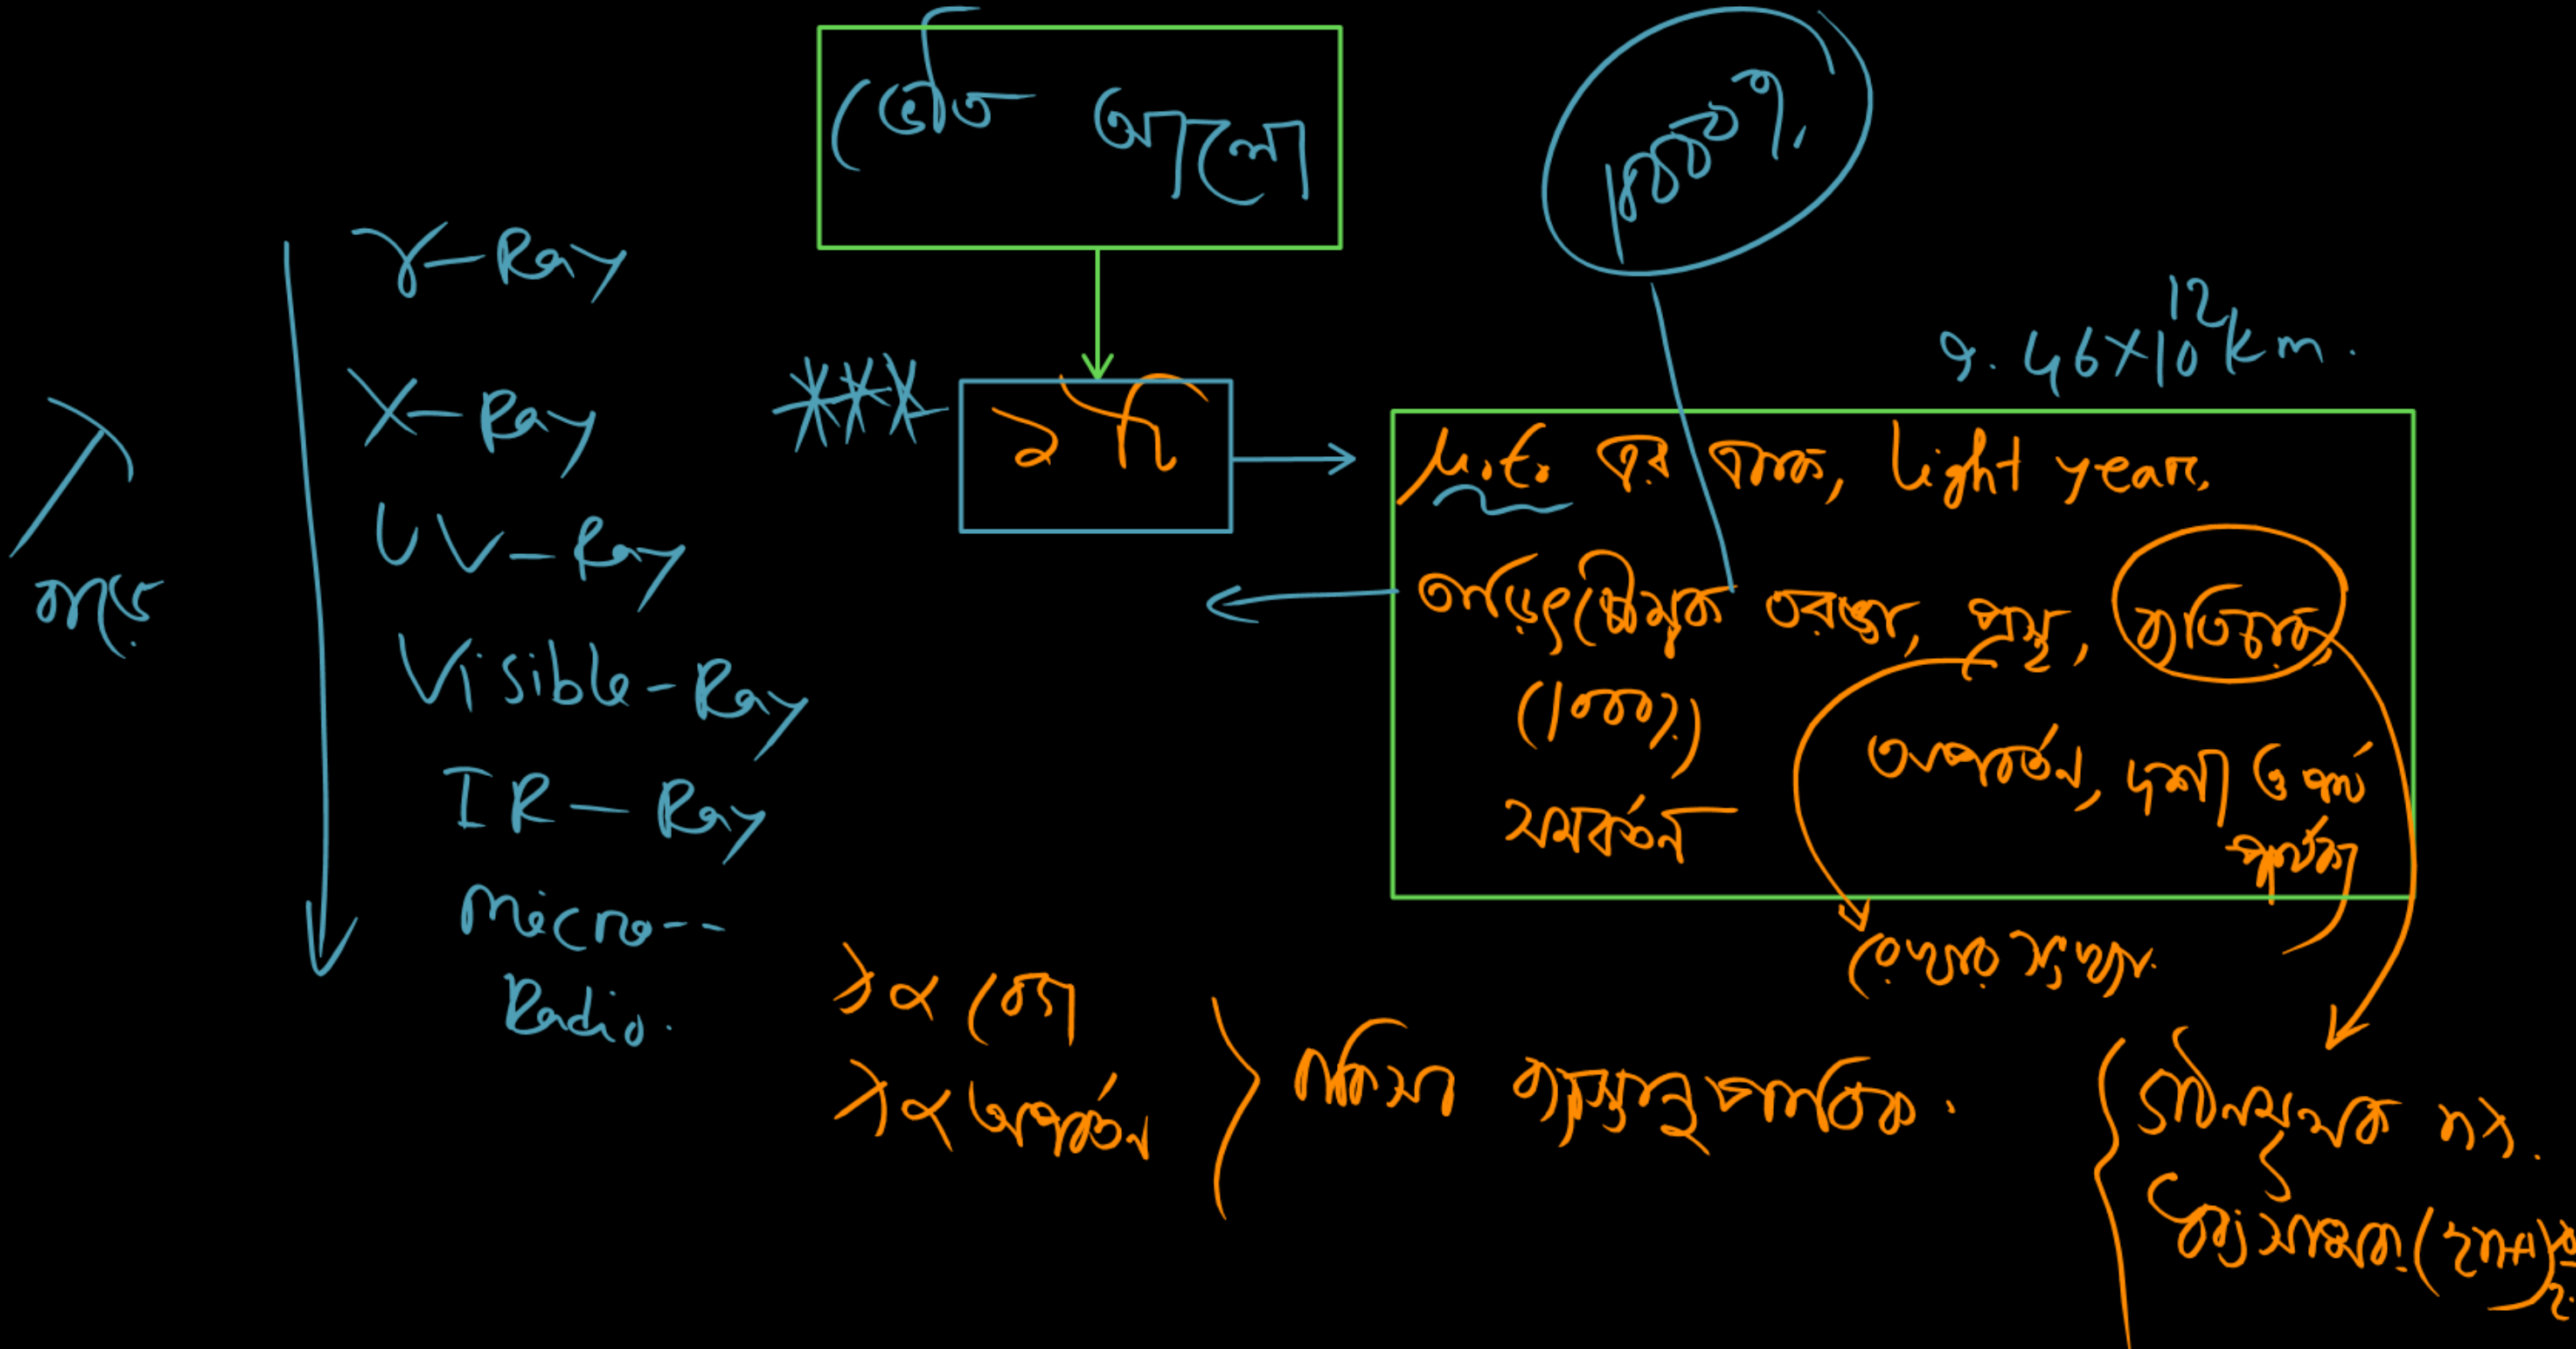 ভৌত আলো
1000%
γ-Ray
X-Ray
UV-Ray
Visible-Ray
IR-Ray
Micro--
Radio.
λ
বাড়ে
***
১ টি
9.46×10^12 km.
μ.ε. এর একক, light year.
তাড়িৎচৌম্বক তরঙ্গ, প্রস্থ, ব্যতিচার,
(1000%)
সমবর্তন
অপবর্তন, দশা ও পথ
পার্থক্য
রেখার সংখ্যা.
λ ∝ বেগ
λ ∝ অপবর্তন
ব্যস্তানুপাতিক.
গঠনমূলক nλ.
ধ্বংসাত্মক (2n+1)λ/2.